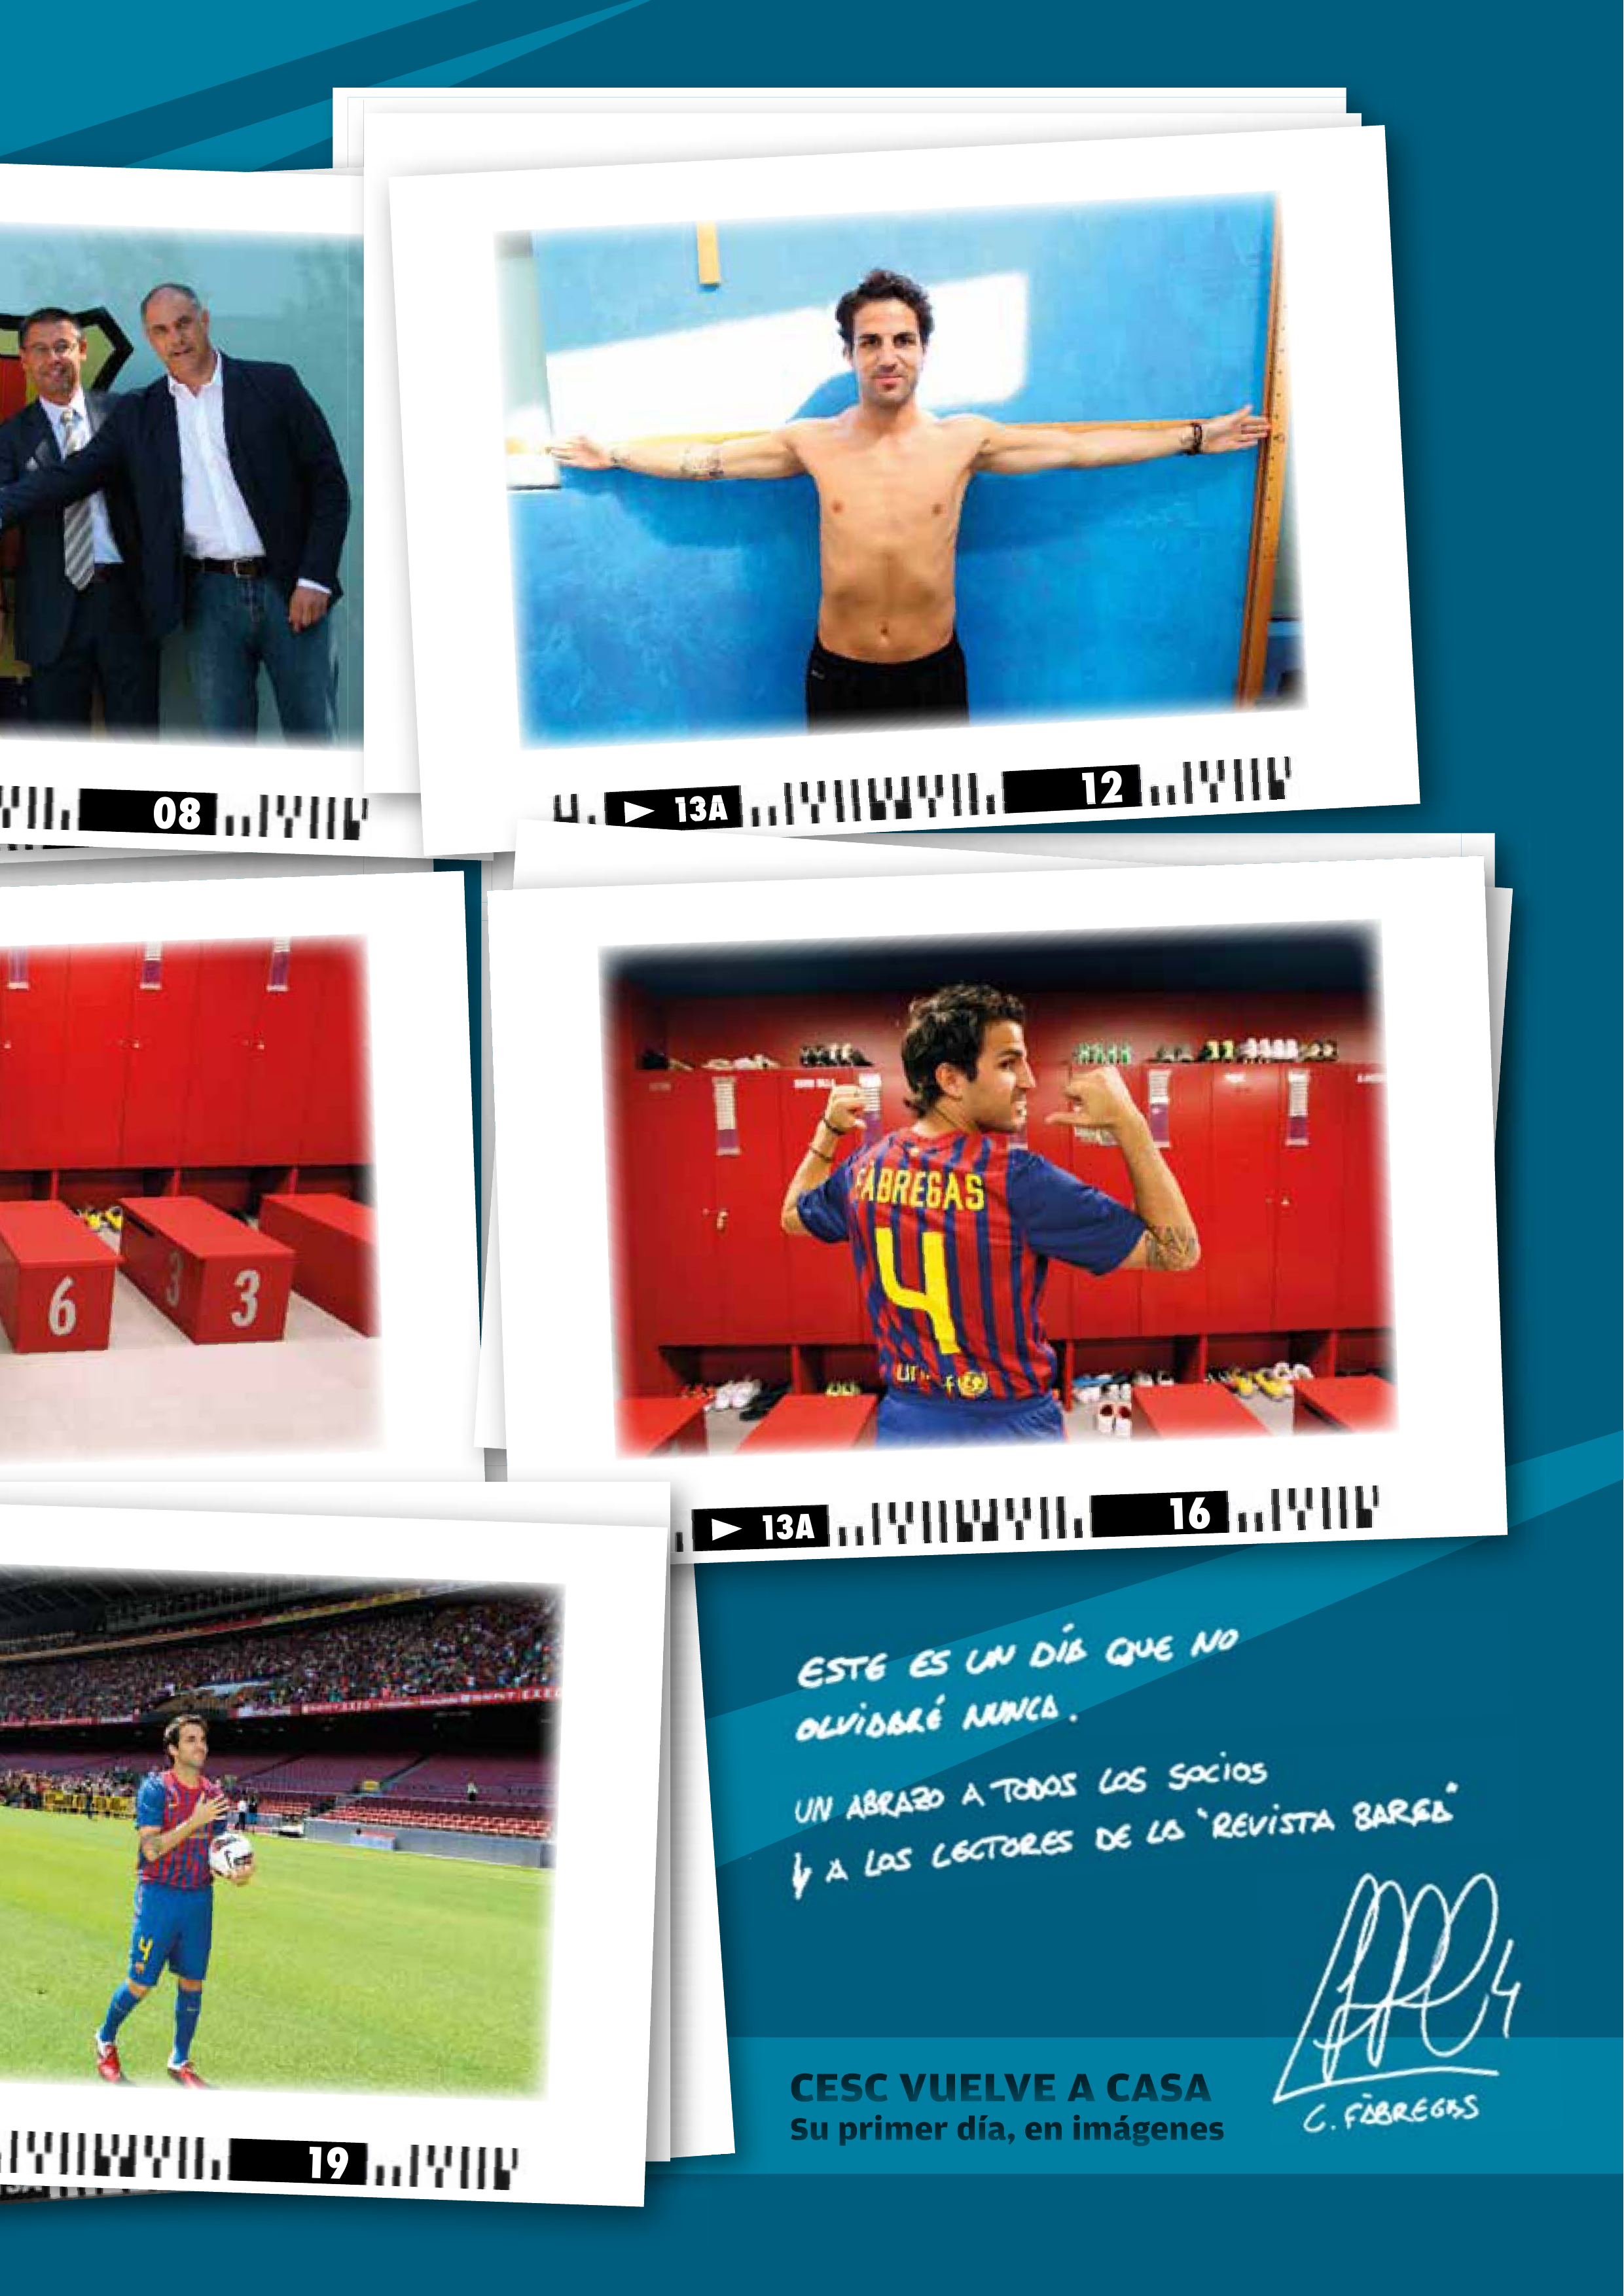 08
13A
12
6
3
3
FÀBREGAS
4
unicef
13A
16
4
19
ESTE ES UN DÍA QUE NO
OLVIDARÉ NUNCA.
UN ABRAZO A TODOS LOS SOCIOS
Y A LOS LECTORES DE LA "REVISTA BARÇA"
4
C. FÀBREGAS
CESC VUELVE A CASA
Su primer día, en imágenes